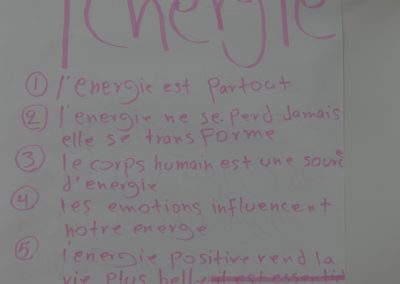 l'energie
① l'energie est partout
② l'energie ne se perd Jamais
elle se transforme
③ le corps humain est une source
d'energie
④ les emotions influencent
notre energie
⑤ l'energie positive rend la
vie plus belle